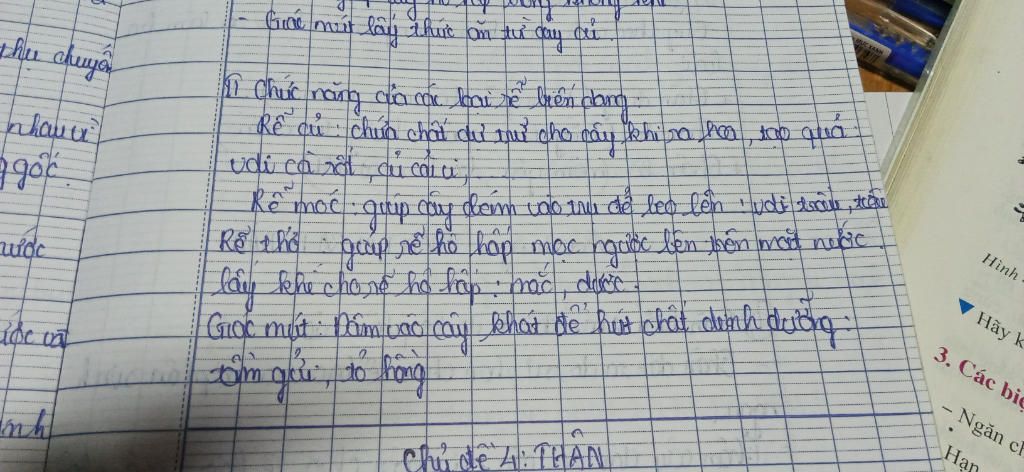 - Giác mút lấy thức ăn từ cây củ.
phụ chuyển
II Chức năng của các loại rễ biến dạng.
nhau từ
Rễ củ: chứa chất dự trữ cho cây khi ra hoa, tạo quả.
gốc.
vd: cà rốt, củ cải,
Rễ móc: giúp cây bám vào trụ để leo lên: vd: trầu, tiêu
nước
Rễ thở: giúp rễ hô hấp mọc ngược lên trên mặt nước
lấy khí cho rễ hô hấp: mắc, đước.
Giác mút: Đâm vào cây khác để hút chất dinh dưỡng:
tầm gửi, tơ hồng
Chủ đề 4: THÂN
Hình
▼ Hãy k
3. Các biệ
- Ngăn ch
Hạn